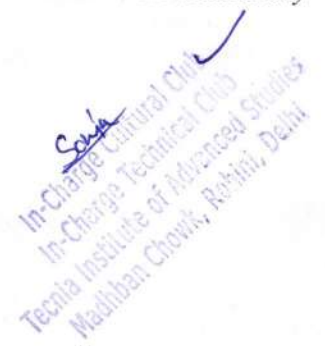 Sonia
In-Charge Cultural Club
In-Charge Technical Club
Tecnia Institute of Advanced Studies
Madhban Chowk, Rohini, Delhi